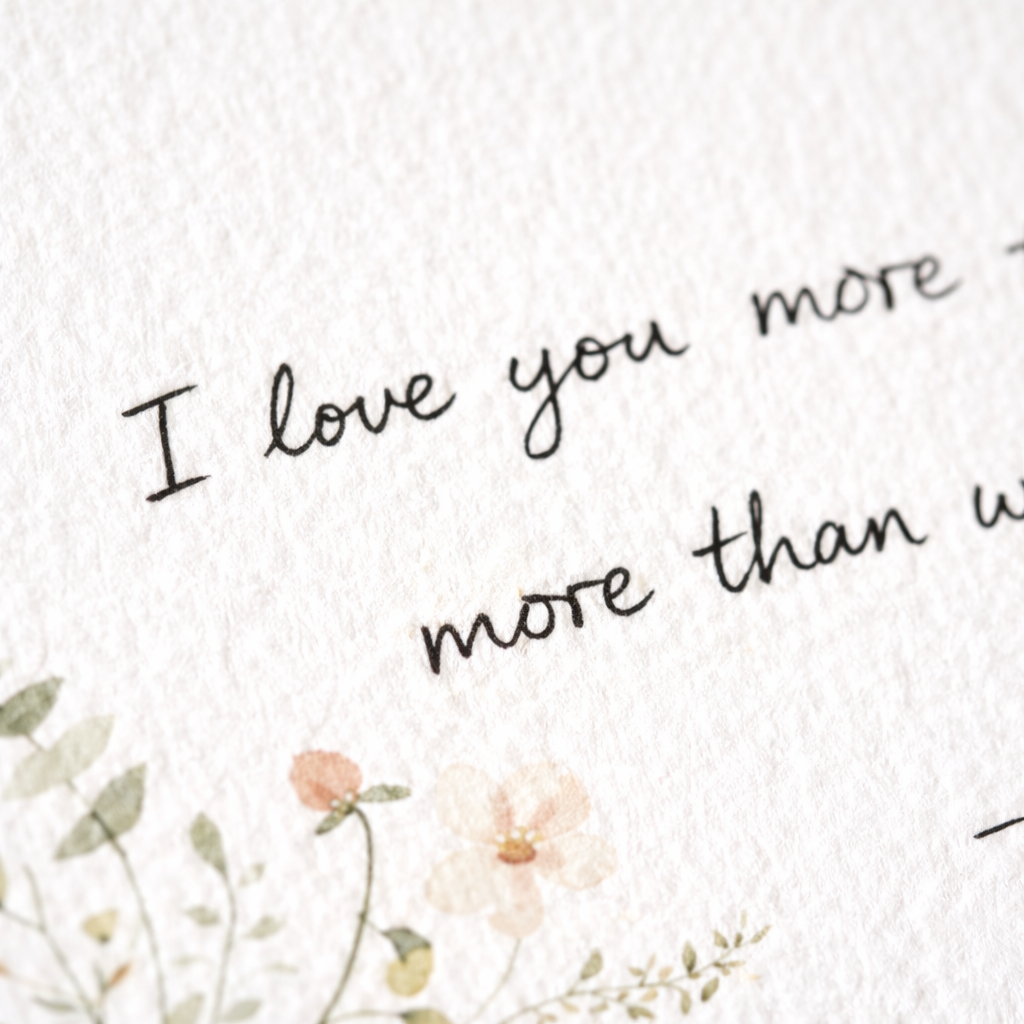 I love you more
more than